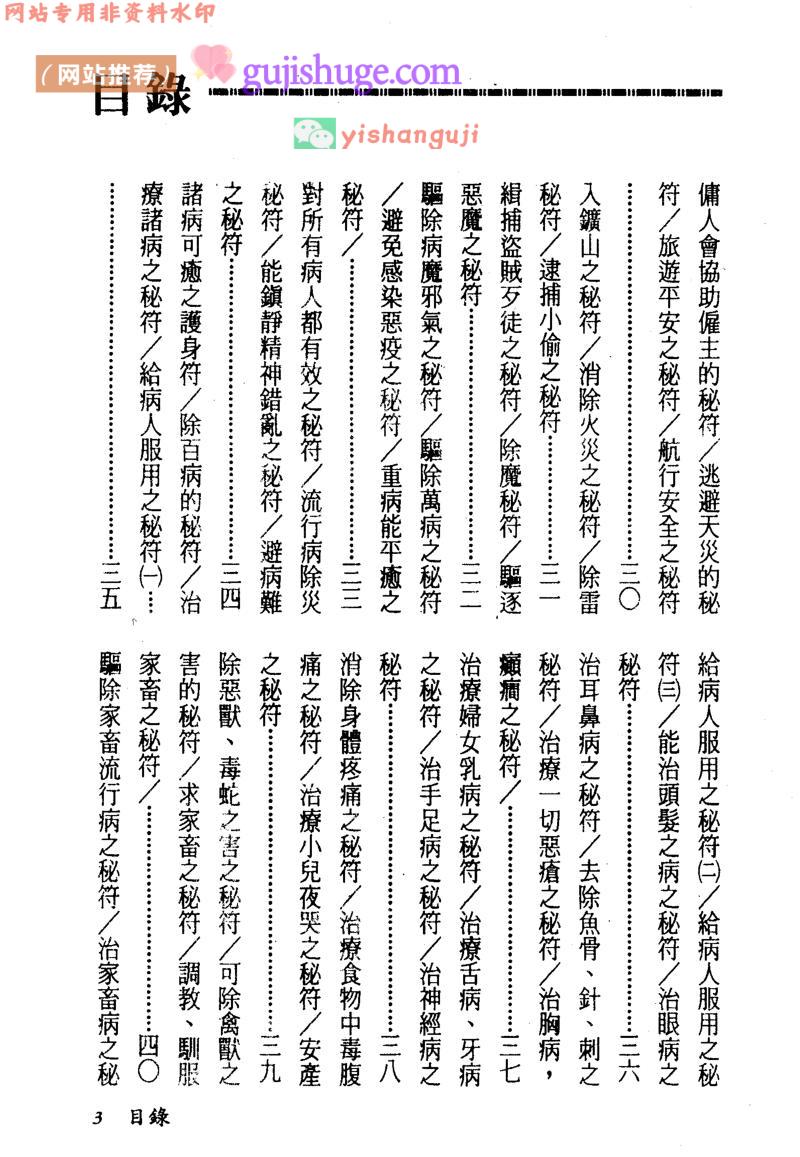 网站专用非资料水印
(网站推荐)
gujishuge.com
目錄
yishanguji
傭人會協助僱主的秘符／逃避天災的秘
符／旅遊平安之秘符／航行安全之秘符
…………………………三〇
入鑛山之秘符／消除火災之秘符／除雷
秘符／逮捕小偷之秘符…………三一
緝捕盜賊歹徒之秘符／除魔秘符／驅逐
惡魔之秘符…………………三二
驅除病魔邪氣之秘符／驅除萬病之秘符
／避免感染惡疫之秘符／重病能平癒之
秘符／……………………三三
對所有病人都有效之秘符／流行病除災
秘符／能鎭靜精神錯亂之秘符／避病難
之秘符……………………三四
諸病可癒之護身符／除百病的秘符／治
療諸病之秘符／給病人服用之秘符㈠…
…………………………三五
給病人服用之秘符㈡／給病人服用之秘
符㈢／能治頭髮之病之秘符／治眼病之
秘符………………………三六
治耳鼻病之秘符／去除魚骨、針、刺之
秘符／治療一切惡瘡之秘符／治胸病，
癲癎之秘符／…………………三七
治療婦女乳病之秘符／治療舌病、牙病
之秘符／治手足病之秘符／治神經病之
秘符………………………三八
消除身體疼痛之秘符／治療食物中毒腹
痛之秘符／治療小兒夜哭之秘符／安產
之秘符……………………三九
除惡獸、毒蛇之害之秘符／可除禽獸之
害的秘符／求家畜之秘符／調教、馴服
家畜之秘符／…………………四〇
驅除家畜流行病之秘符／治家畜病之秘
3 目錄